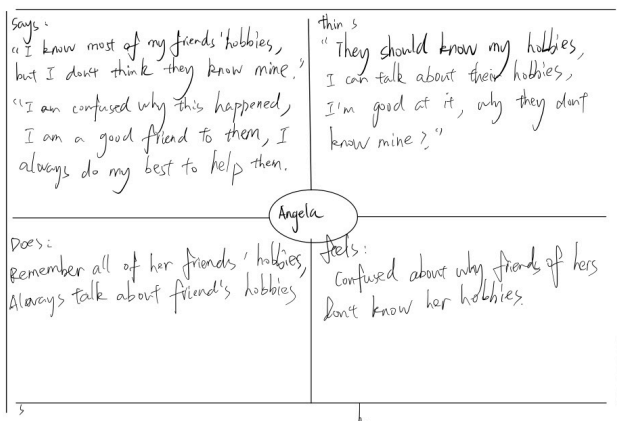 Says:
"I know most of my friends' hobbies,
but I don't think they know mine."
"I am confused why this happened,
I am a good friend to them, I
always do my best to help them.
thin s
"They should know my hobbies,
I can talk about their hobbies,
I'm good at it, why they don't
know mine?"
Angela
Does:
Remember all of her friends' hobbies,
Always talk about friend's hobbies
feels:
Confused about why friends of hers
Don't know her hobbies.